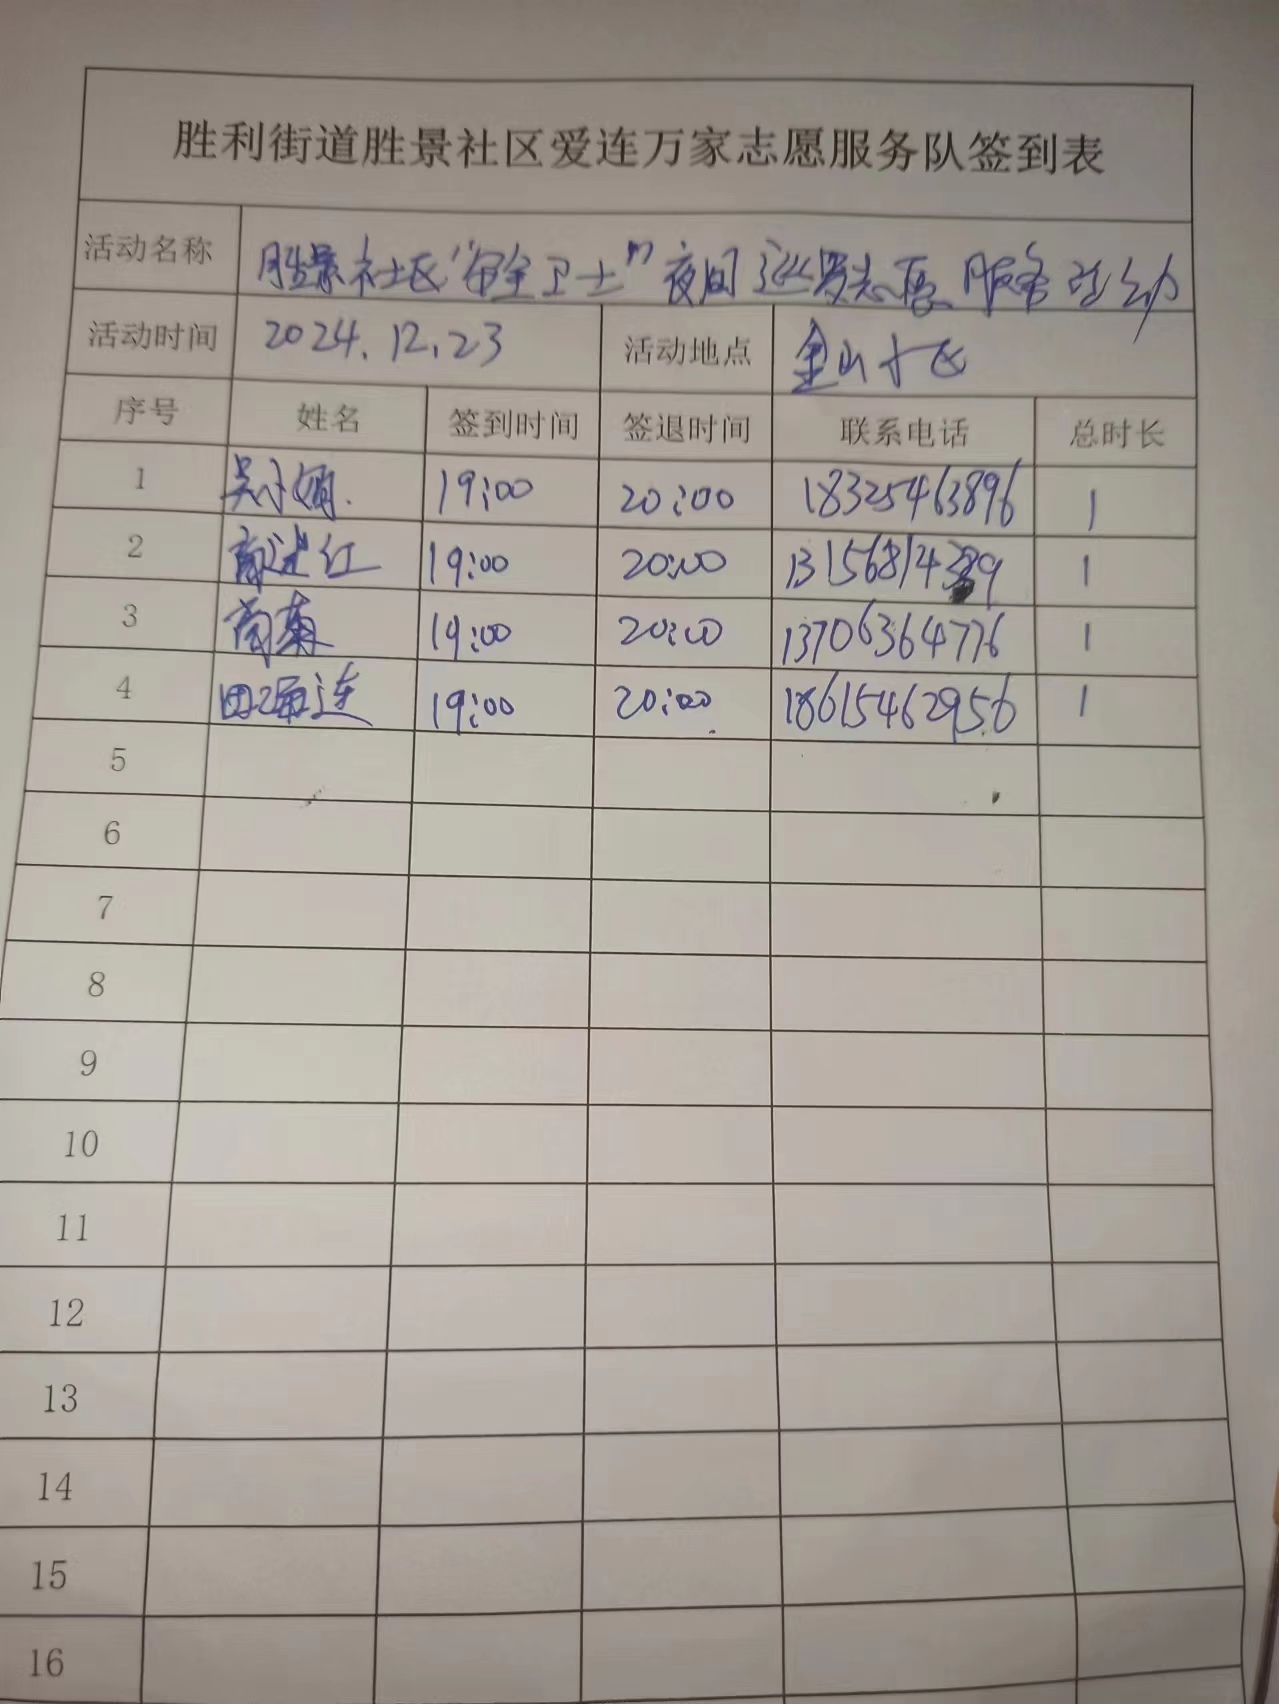 胜利街道胜景社区爱连万家志愿服务队签到表
活动名称 胜景社区“安全卫士”夜间巡罗志愿服务活动
活动时间 2024.12.23 活动地点 金山小区
序号 姓名 签到时间 签退时间 联系电话 总时长
1 吴小娟 19:00 20:00 18325463896 1
2 19:00 20:00 1
3 商菊 19:00 20:00 13706364776 1
4 19:00 20:00 18615462956 1
5
6
7
8
9
10
11
12
13
14
15
16